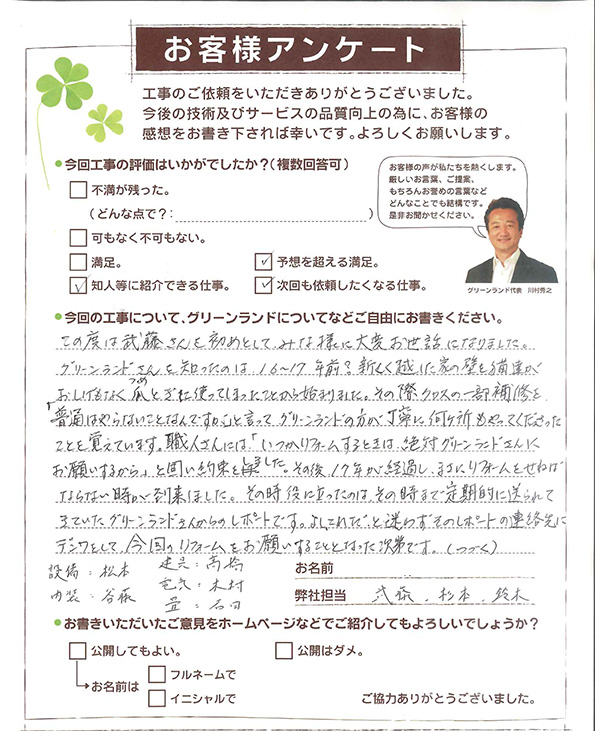 お客様アンケート
工事のご依頼をいただきありがとうございました。
今後の技術及びサービスの品質向上の為に、お客様の
感想をお書き下されば幸いです。よろしくお願いします。
●今回工事の評価はいかがでしたか?(複数回答可)
不満が残った。
(どんな点で?: )
可もなく不可もない。
満足。
✓予想を超える満足。
✓知人等に紹介できる仕事。
✓次回も依頼したくなる仕事。
お客様の声が私たちを熱くします。
厳しいお言葉、ご提案、
もちろんお誉めの言葉など
どんなことでも結構です。
是非お聞かせください。
グリーンランド代表 川村秀之
●今回の工事について、グリーンランドについてなどご自由にお書きください。
この度は武藤さんを初めとして、みな様に大変お世話になりました。
グリーンランドさんを知ったのは、16〜17年前?新しく越した家の壁を猫達が
おしげもなく爪とぎに使ってしまったことから始まりました。その際クロスの一部補修を
つめ
「普通はやらないことなんですが」と言って、グリーンランドの方が丁寧に何ヶ所もやってくださった
ことを覚えています。職人さんには「いつかリフォームするときは、絶対グリーンランドさんに
お願いするから」と固い約束をしました。その後、17年が経過し、まさにリフォームをせねば
ならない時が到来しました。その時役に立ったのは、その時まで定期的に送られて
きていたグリーンランドさんからのレポートです。よしこれだ、と迷わずそのレポートの連絡先に
デンワをして、今回のリフォームをお願いすることとなった次第です。(つづく)
設備:松本 建具:高橋
電気:木村
内装:谷藤 畳:石田
お名前
弊社担当 武藤、杉本、鈴木
●お書きいただいたご意見をホームページなどでご紹介してもよろしいでしょうか?
公開してもよい。
公開はダメ。
お名前は
フルネームで
イニシャルで
ご協力ありがとうございました。